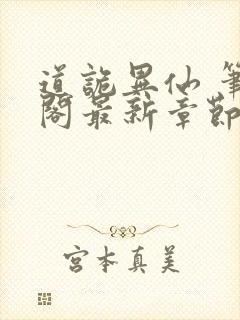 道詭異仙 筆
閣最新章節
宮本真美